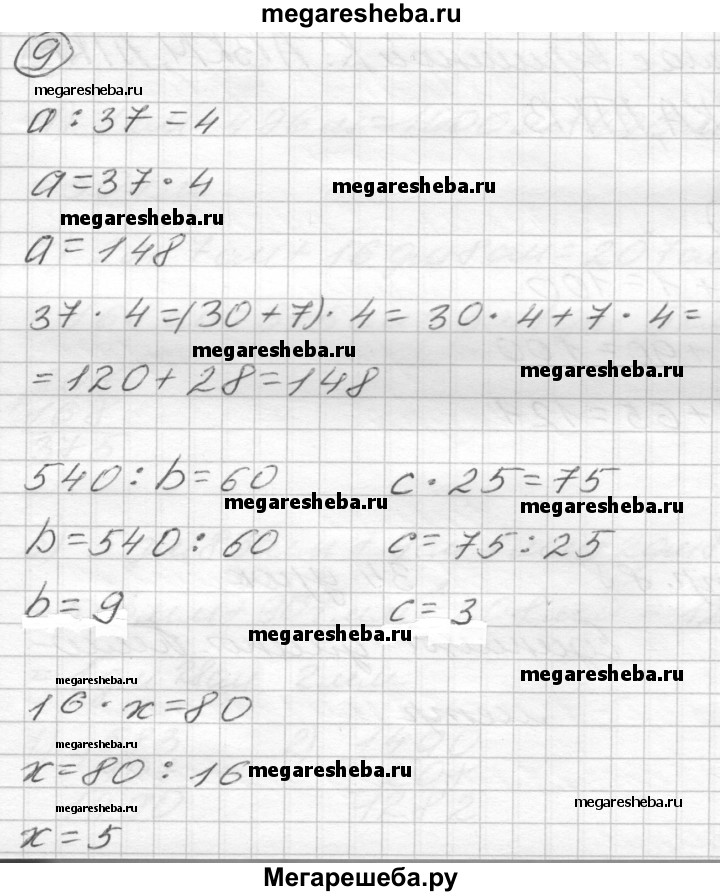 megaresheba.ru
9
megaresheba.ru
a : 37 = 4
a = 37 · 4
megaresheba.ru
megaresheba.ru
a = 148
37 · 4 = (30 + 7) · 4 = 30 · 4 + 7 · 4 =
megaresheba.ru
megaresheba.ru
= 120 + 28 = 148
540 : b = 60
c · 25 = 75
megaresheba.ru
megaresheba.ru
b = 540 : 60
c = 75 : 25
b = 9
c = 3
megaresheba.ru
megaresheba.ru
megaresheba.ru
16 · x = 80
megaresheba.ru
x = 80 : 16
megaresheba.ru
megaresheba.ru
megaresheba.ru
x = 5
Мегарешеба.ру